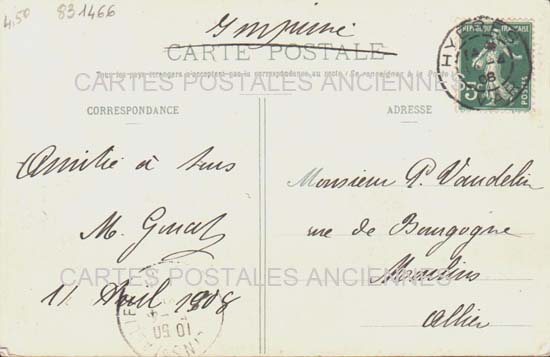 4,50 831466
Imprimé
CARTE POSTALE
Tous les pays étrangers n'acceptent pas la correspondance au recto. (Se renseigner à la Poste
CARTES POSTALES ANCIENNES
CORRESPONDANCE
ADRESSE
RÉPUBLIQUE FRANÇAISE
5c
POSTES
HYÈRES
08
Amitié à tous
M.
11 Avril 1908
10 50
Monsieur P. Vaudelin
rue de Bourgogne
Moulins
Allier
CARTES POSTALES ANCIENNES